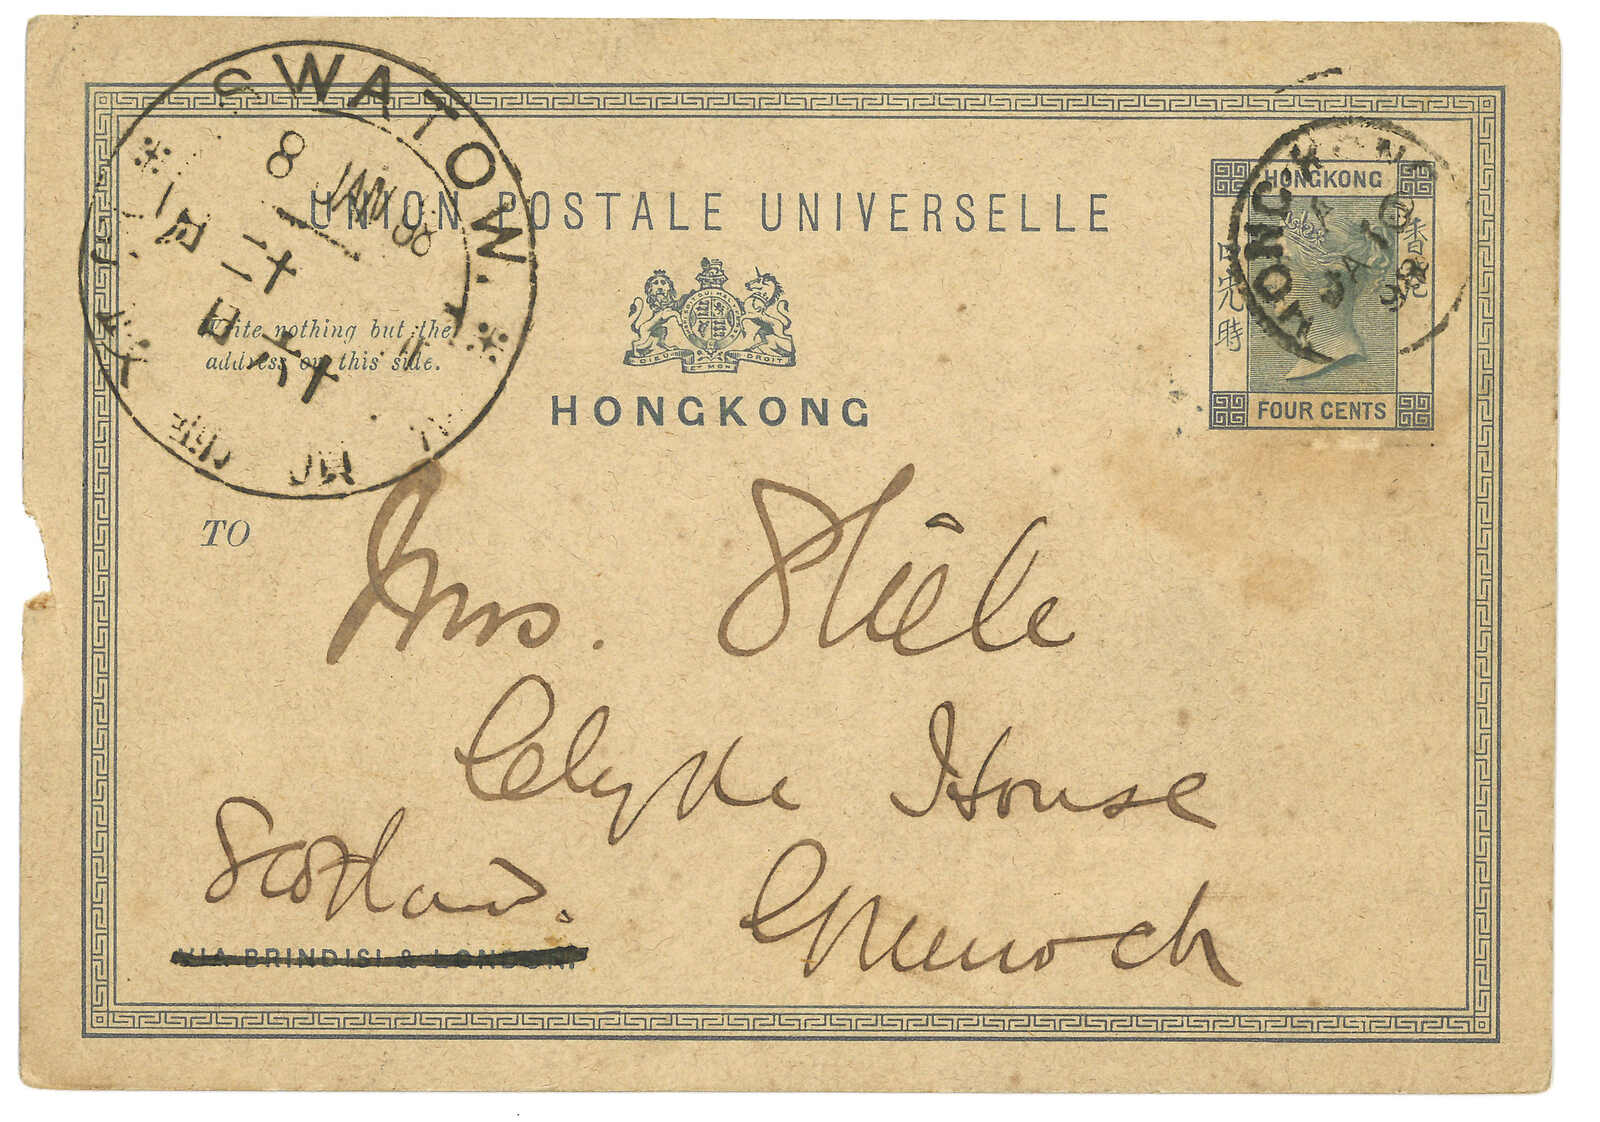 SWATOW.
8 JAN 98
UNION POSTALE UNIVERSELLE
Write nothing but the
address on this side.
DIEU ET MON DROIT
HONGKONG
HONGKONG
香港
先時
FOUR CENTS
HONG KONG
A
JA 10
98
TO
Mrs. Steele
Clyde House
Scotland.
Greenock
VIA BRINDISI & LONDON.